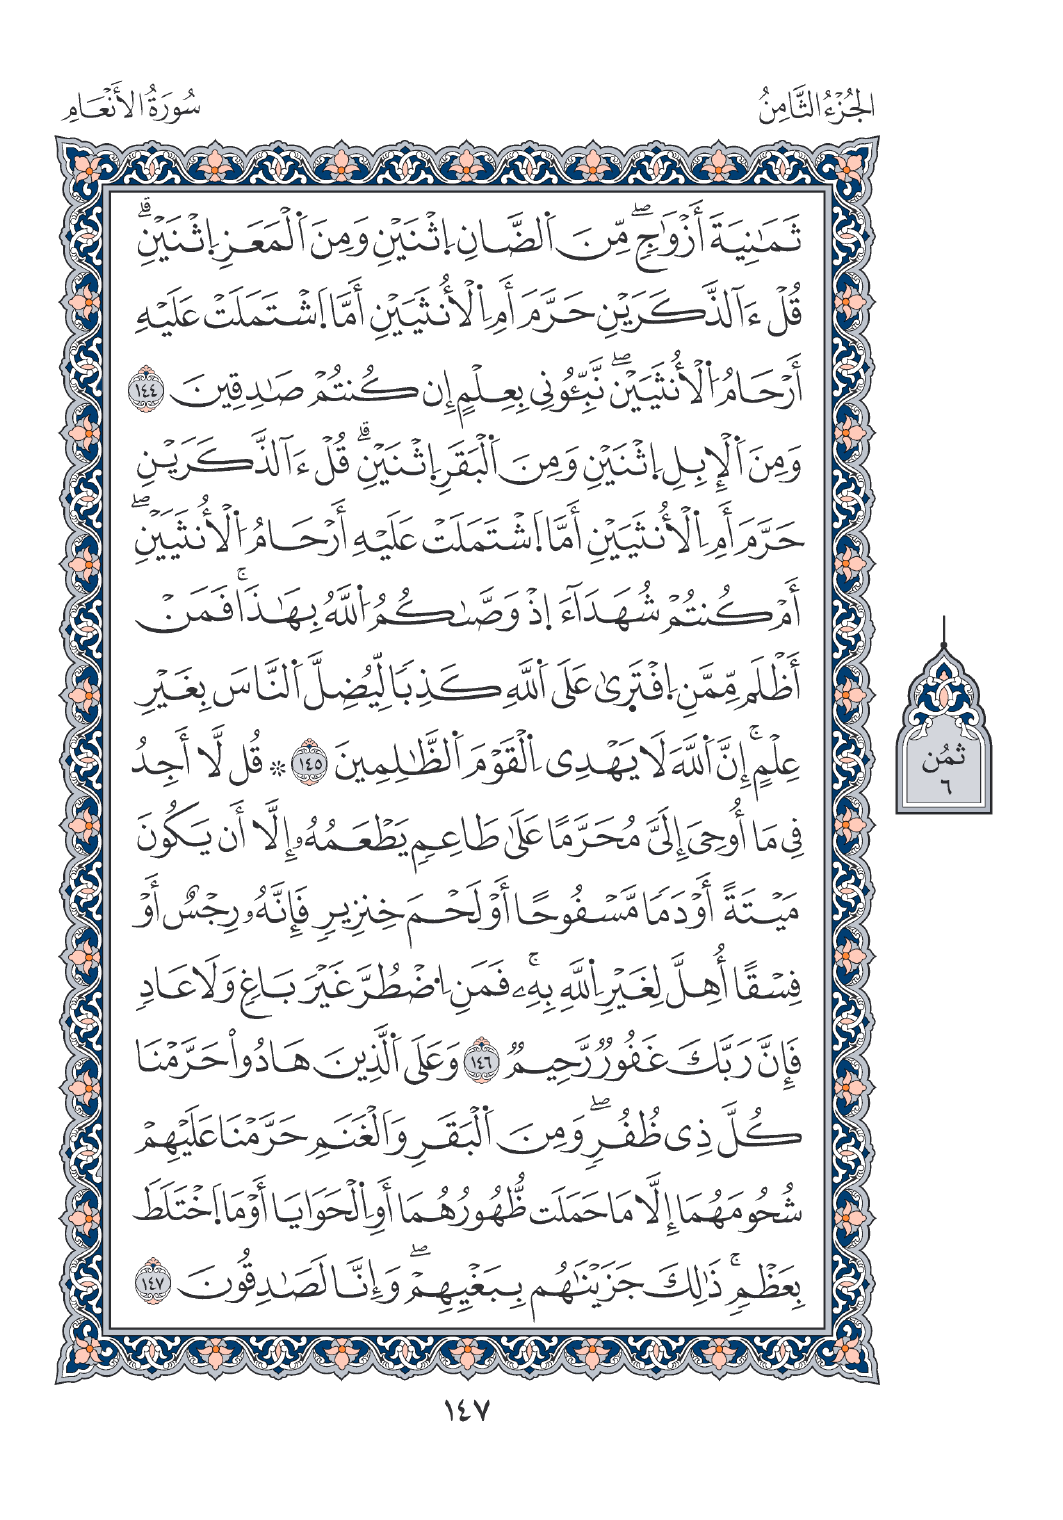 الجُزْءُ الثَّامِنُ
سُورَةُ الأَنْعَامِ
ثَمَٰنِيَةَ أَزْوَٰجٖۖ مِّنَ اَ۬لضَّأْنِ اِ۪ثْنَيْنِ وَمِنَ اَ۬لْمَعَزِ اِ۪ثْنَيْنِۗ
قُلْ ءَآلذَّكَرَيْنِ حَرَّمَ أَمِ اِ۬لْأُنثَيَيْنِ أَمَّا اَ۪شْتَمَلَتْ عَلَيْهِ
أَرْحَامُ اُ۬لْأُنثَيَيْنِۖ نَبِّـُٔونِى بِعِلْمٍ إِن كُنتُمْ صَٰدِقِينَ ١٤٤
وَمِنَ اَ۬لْإِبِلِ اِ۪ثْنَيْنِ وَمِنَ اَ۬لْبَقَرِ اِ۪ثْنَيْنِۗ قُلْ ءَآلذَّكَرَيْنِ
حَرَّمَ أَمِ اِ۬لْأُنثَيَيْنِ أَمَّا اَ۪شْتَمَلَتْ عَلَيْهِ أَرْحَامُ اُ۬لْأُنثَيَيْنِۖ
أَمْ كُنتُمْ شُهَدَآءَ اِذْ وَصَّىٰكُمُ اُ۬للَّهُ بِهَٰذَاۚ فَمَنْ
أَظْلَم مِّمَّنِ اِ۪فْتَر۪ىٰ عَلَى اَ۬للَّهِ كَذِبٗا لِّيُضِلَّ اَ۬لنَّاسَ بِغَيْرِ
عِلْمٍۚ إِنَّ اَ۬للَّهَ لَا يَهْدِى اِ۬لْقَوْمَ اَ۬لظَّٰلِمِينَ ١٤٥ ۞ قُل لَّا أَجِدُ
فِى مَا أُوحِىَ إِلَىَّ مُحَرَّمًا عَلَىٰ طَاعِمٖ يَطْعَمُهُۥ إِلَّا أَن يَكُونَ
مَيْتَةً أَوْ دَمٗا مَّسْفُوحًا أَوْ لَحْمَ خِنزِيرٖ فَإِنَّهُۥ رِجْسٌ أَوْ
فِسْقًا أُهِلَّ لِغَيْرِ اِ۬للَّهِ بِهِۦۚ فَمَنِ اِ۟ضْطُرَّ غَيْرَ بَاغٖ وَلَا عَادٖ
فَإِنَّ رَبَّكَ غَفُورٞ رَّحِيمٞ ١٤٦ وَعَلَى اَ۬لَّذِينَ هَادُواْ حَرَّمْنَا
كُلَّ ذِى ظُفُرٖۖ وَمِنَ اَ۬لْبَقَرِ وَالْغَنَمِ حَرَّمْنَا عَلَيْهِمْ
شُحُومَهُمَا إِلَّا مَا حَمَلَت ظُّهُورُهُمَا أَوِ اِ۬لْحَوَايَا أَوْ مَا اَ۪خْتَلَطَ
بِعَظْمٖۚ ذَٰلِكَ جَزَيْنَٰهُم بِبَغْيِهِمْۖ وَإِنَّا لَصَٰدِقُونَ ١٤٧
ثُمُن
٦
١٤٧